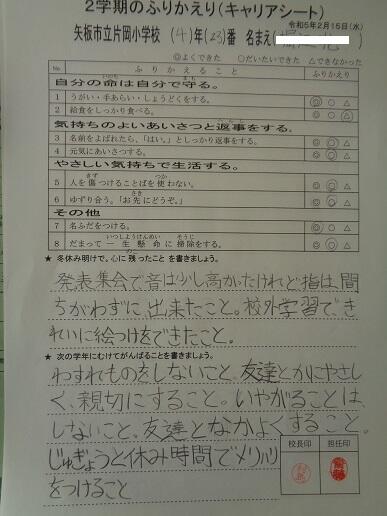 2学期のふりかえり(キャリアシート)
令和5年2月15日(水)
矢板市立片岡小学校 (4)年(23)番 名まえ
◎よくできた ○だいたいできた △できなかった
No ふりかえること ふりかえり
自分の命は自分で守る。
1 うがい・手あらい・しょうどくをする。 ◎ ○ △
2 給食をしっかり食べる。 ◎ ○ △
気持ちのよいあいさつと返事をする。
3 名前をよばれたら、「はい。」としっかり返事をする。 ◎ ○ △
4 元気にあいさつする。 ◎ ○ △
やさしい気持ちで生活する。
5 人を傷つけることばを使わない。 ◎ ○ △
6 ゆずり合う。「お先にどうぞ。」 ◎ ○ △
その他
7 名ふだをつける。 ◎ ○ △
8 だまって一生懸命に掃除をする。 ◎ ○ △
★ 冬休み明けで、心に残ったことを書きましょう。
発表集会で音は少し高かたけれど指は、間
ちがわずに、出来たこと。校外学習で、き
れいに絵つけをできたこと。
★ 次の学年にむけてがんばることを書きましょう。
わすれものをしないこと、友達とかにやさし
く、親切にすること。いやがることは、
しないこと。友達となかよくすること。
じゅぎょうと休み時間でメリハリ
をつけること
校長印 担任印